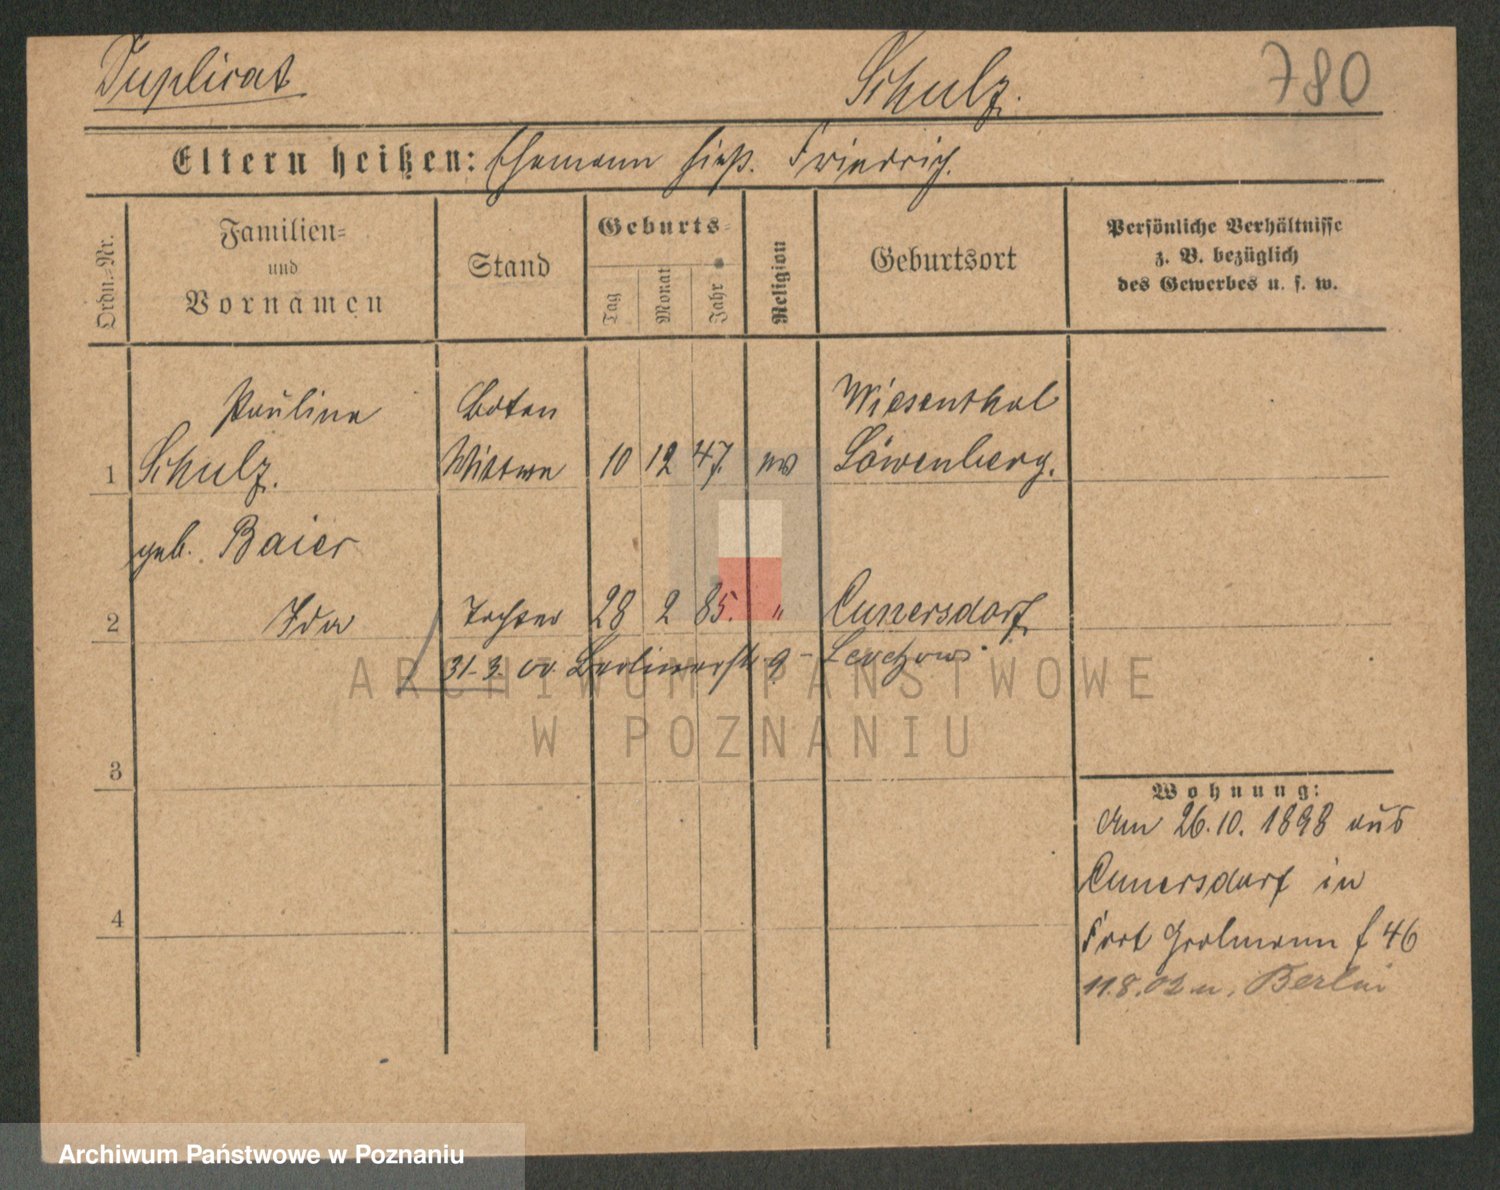 Duplicat
Schulz.
780
Eltern heißen: Ehemann hieß. Friedrich.
Ordn.-Nr.
Familien-
und
Vornamen
Stand
Geburts-
Tag
Monat
Jahr
Religion
Geburtsort
Persönliche Verhältnisse
z. B. bezüglich
des Gewerbes u. s. w.
Pauline Boten Wiesenthal
1 Schulz. Wittwe 10 12 47. ev Löwenberg.
geb. Baier
2 Ida Tochter 28 2 85. " Cunersdorf
31.3. 00. Berlinerstr 9 -
ARCHIWUM PAŃSTWOWE
W POZNANIU
3
Wohnung:
Am 26.10. 1898 aus
Cunersdorf in
4
Fort Grolmann f 46
11.8.02 n. Berlin
Archiwum Państwowe w Poznaniu